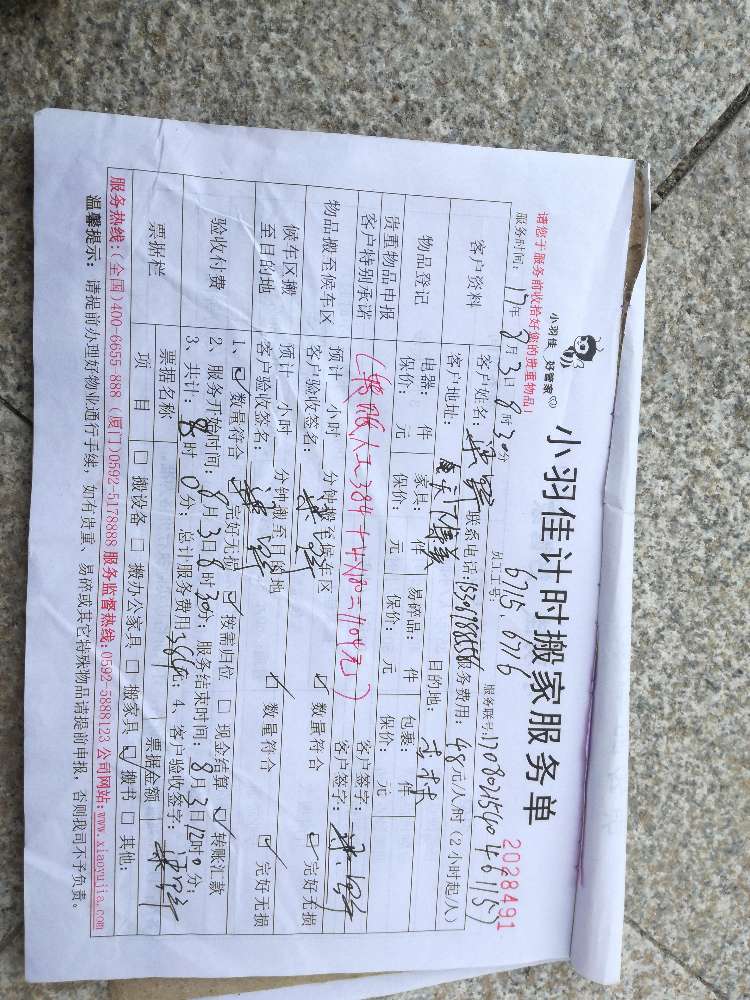 小羽佳 好管家
小羽佳计时搬家服务单
2028491
请您于服务前收拾好您的贵重物品!
员工工号: 6715、6716
服务时间: 17年8月3日8时30分
服务联号:
客户资料
客户姓名: 联系电话: 服务费用: 48元/人/时 (2小时起/人)
客户地址: 目的地:
物品登记
电器: 件 家具: 件 易碎品: 件 包裹: 件
贵重物品申报
保价: 元 保价: 元 保价: 元 保价: 元
客户特别承诺
384+ =1104元)
客户签字:
物品搬至候车区
预计 小时 分钟搬至候车区 数量符合 完好无损
客户验收签名: 客户签字:
候车区搬至目的地
预计 小时 分钟搬至目的地 数量符合 完好无损
客户验收签名:
验收付费
1、 数量符合 完好无损 按需归位 现金结算 转账汇款
2、服务开始时间: 8月3日8时30分; 服务结束时间: 8月3日12时0分;
3、共计: 8时0分; 总计服务费用384元; 4、客户验收签字:
票据栏
票据名称 票据金额
项 目 搬设备 搬办公家具 搬家具 搬书 其他:
服务热线:(全国)400-6655-888 (厦门)0592-5178888 服务监督热线:0592-5888123 公司网站:www.xiaoyujia.com
温馨提示: 请提前办理好物业通行手续, 如有贵重、易碎或其它特殊物品请提前申报, 否则我司不予负责。